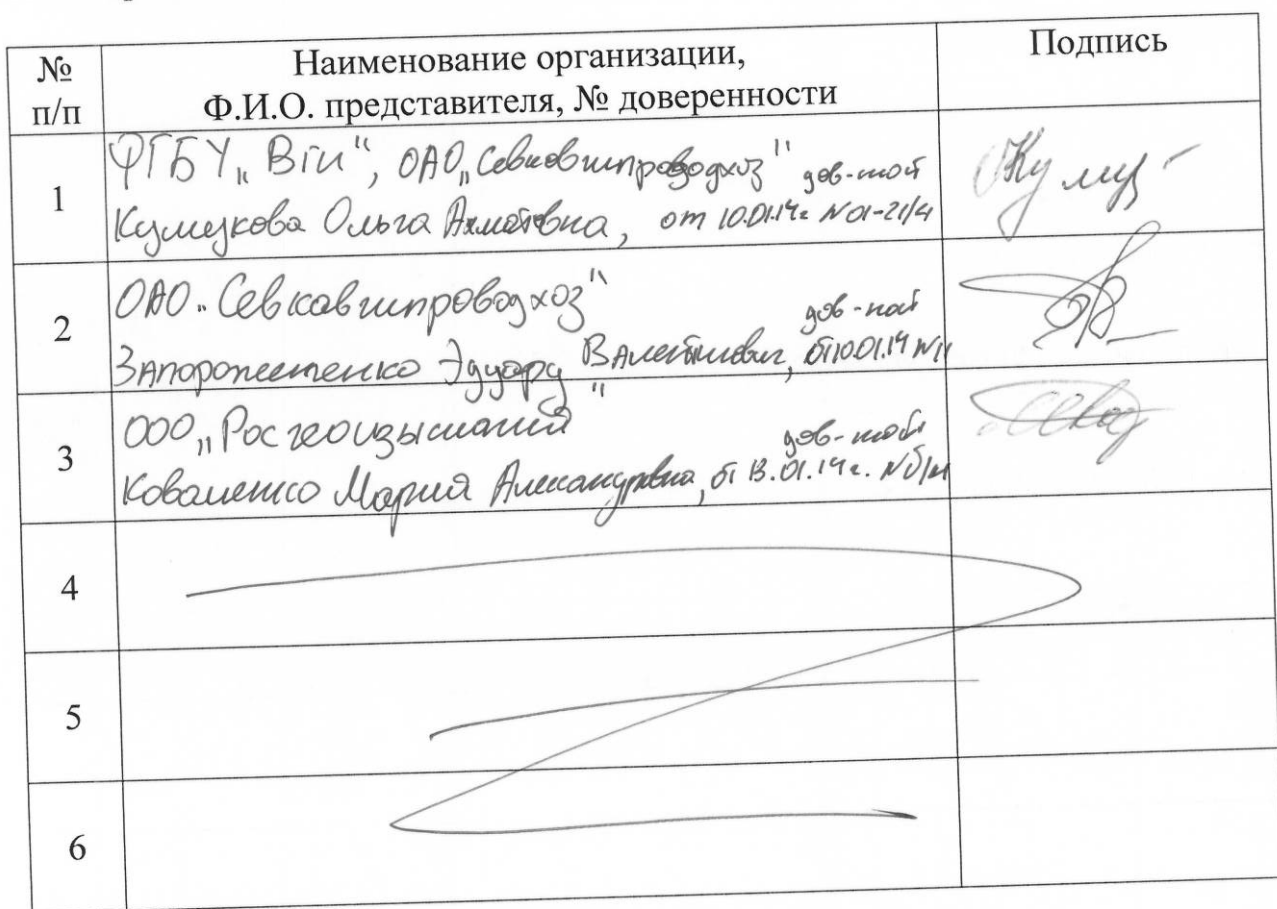 № п/п
Наименование организации,
Ф.И.О. представителя, № доверенности
Подпись
1
ФГБУ „ВГИ", ОАО „Севкавгипроводхоз" дов-ной
Кумукова Ольга Ахматовна, от 10.01.14г N01-21/4
2
ОАО „Севкавгипроводхоз" дов-ной
Запорожченко Эдуард Валентинович, от 10.01.14 N11
3
ООО „Росгеоизыскания" дов-ной
Коваленко Мария Александровна, от 13.01.14г. N б/н
4
5
6